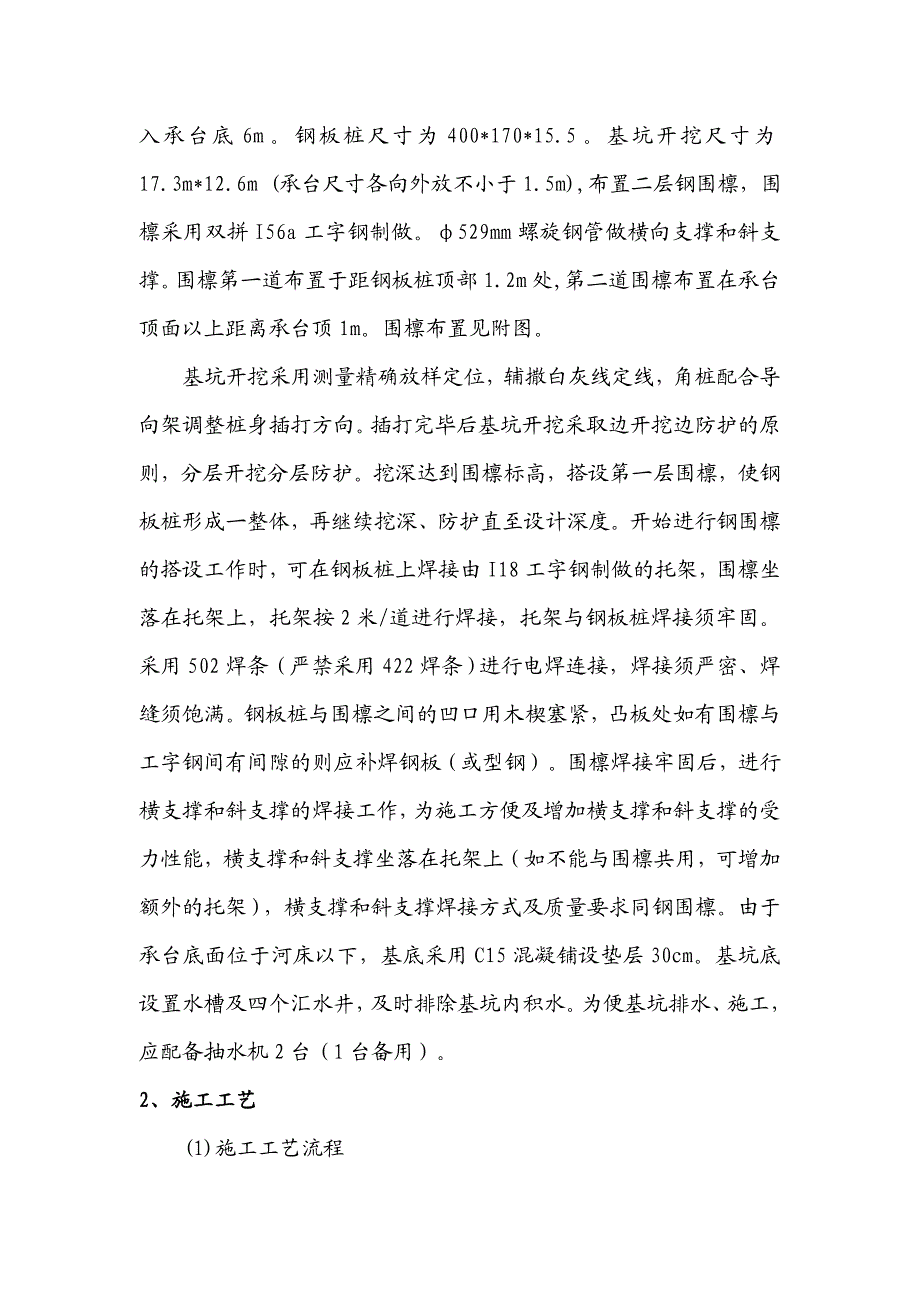 入承台底 6m。钢板桩尺寸为 400*170*15.5。基坑开挖尺寸为
17.3m*12.6m (承台尺寸各向外放不小于1.5m),布置二层钢围檩，围
檩采用双拼 I56a 工字钢制做。φ529mm 螺旋钢管做横向支撑和斜支
撑。围檩第一道布置于距钢板桩顶部 1.2m 处,第二道围檩布置在承台
顶面以上距离承台顶 1m。围檩布置见附图。
基坑开挖采用测量精确放样定位，辅撒白灰线定线，角桩配合导
向架调整桩身插打方向。插打完毕后基坑开挖采取边开挖边防护的原
则，分层开挖分层防护。挖深达到围檩标高，搭设第一层围檩，使钢
板桩形成一整体，再继续挖深、防护直至设计深度。开始进行钢围檩
的搭设工作时，可在钢板桩上焊接由 I18 工字钢制做的托架，围檩坐
落在托架上，托架按 2 米/道进行焊接，托架与钢板桩焊接须牢固。
采用 502 焊条（严禁采用 422 焊条）进行电焊连接，焊接须严密、焊
缝须饱满。钢板桩与围檩之间的凹口用木楔塞紧，凸板处如有围檩与
工字钢间有间隙的则应补焊钢板（或型钢）。围檩焊接牢固后，进行
横支撑和斜支撑的焊接工作，为施工方便及增加横支撑和斜支撑的受
力性能，横支撑和斜支撑坐落在托架上（如不能与围檩共用，可增加
额外的托架），横支撑和斜支撑焊接方式及质量要求同钢围檩。由于
承台底面位于河床以下，基底采用 C15 混凝铺设垫层 30cm。基坑底
设置水槽及四个汇水井，及时排除基坑内积水。为便基坑排水、施工，
应配备抽水机 2 台（1 台备用）。
2、施工工艺
(1)施工工艺流程